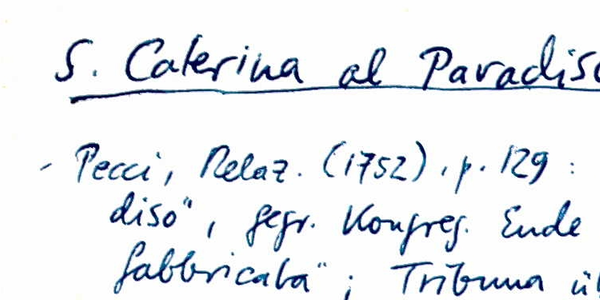 S. Caterina al Paradiso
- Pecci, Relaz. (1752), p. 129 :
diso", gegr. Kongreg. Ende
fabbricata"; Tribuna ü